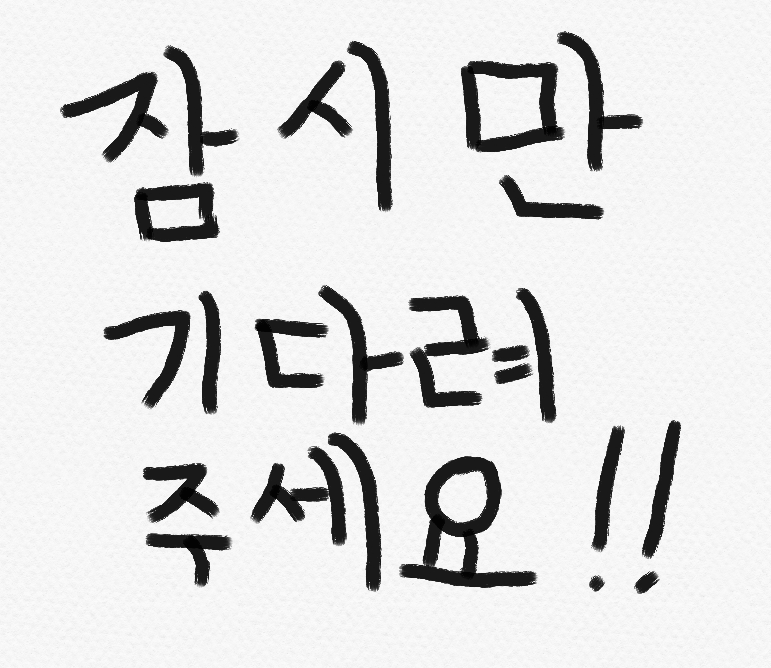 잠시만
기다려
주세요!!